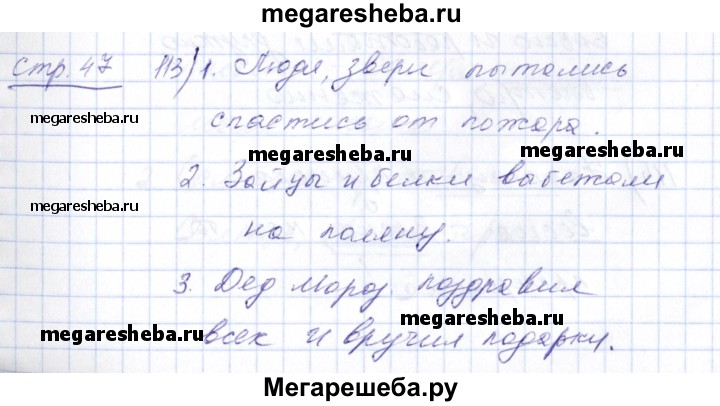 megaresheba.ru
стр. 47 113) 1. Люди, звери пытались
megaresheba.ru
спастись от пожара.
megaresheba.ru
megaresheba.ru
2. Зайцы и белки выбежали
megaresheba.ru
на поляну.
3. Дед Мороз поздравил
megaresheba.ru
megaresheba.ru
всех и вручил подарки.
Мегарешеба.ру